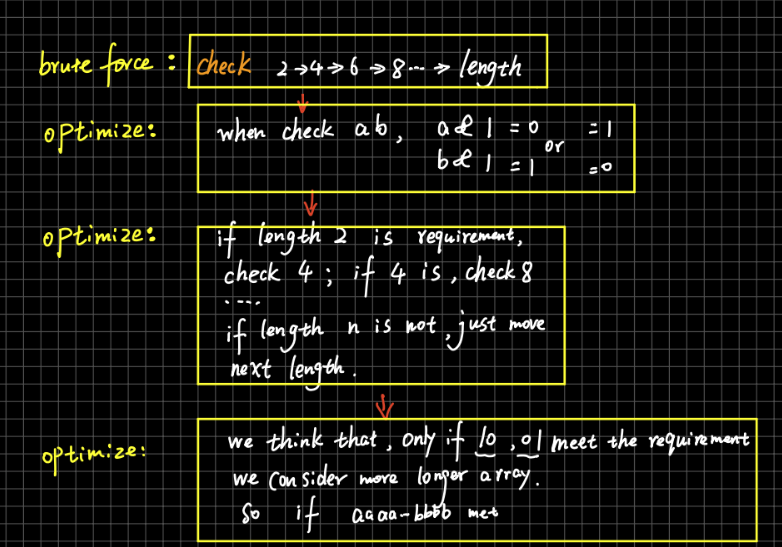 brute force : check 2→4→6→8...→ length
optimize: when check ab, a & 1 = 0 or = 1
b & 1 = 1 = 0
optimize: if length 2 is requirement,
check 4 ; if 4 is , check 8
....
if length n is not , just move
next length .
optimize: we think that , only if 10 , 01 meet the requirement
we consider more longer array.
So if aaaa-bbbb met